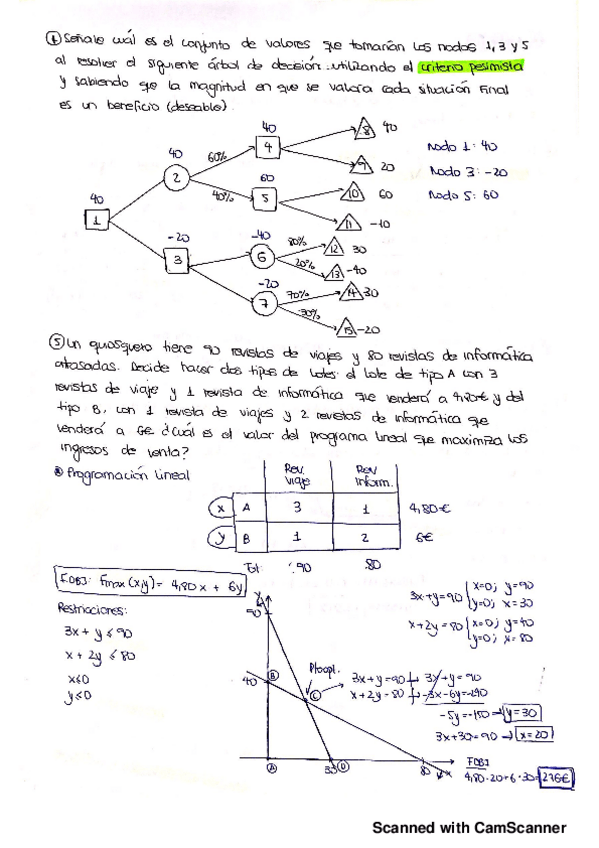 ④ Señale cuál es el conjunto de valores que tomarían los nodos 1, 3 y 5
al resolver el siguiente árbol de decisión utilizando el criterio pesimista
y sabiendo que la magnitud en que se valora cada situación final
es un beneficio (deseable).
40 1
40 2
60%
40%
40 4
60 5
-20 3
-40 6
-20 7
80%
20%
70%
30%
8 40
9 20
10 60
11 -10
12 30
13 -40
14 30
15 -20
Nodo 1: 40
Nodo 3: -20
Nodo 5: 60
⑤ Un quiosquero tiene 90 revistas de viajes y 80 revistas de informática
atrasadas. Decide hacer dos tipos de lotes: el lote de tipo A con 3
revistas de viaje y 1 revista de informática que venderá a 4,80€ y del
tipo B, con 1 revista de viajes y 2 revistas de informática que
venderá a 6€ ¿Cuál es el valor del programa lineal que maximiza los
ingresos de venta?
Programación lineal
Rev. viaje
Rev Inform.
x A 3 1 4,80€
y B 1 2 6€
Tot: 90 80
FOBJ: Fmax(x,y)= 4,80x + 6y
Restricciones:
3x + y ≤ 90
x + 2y ≤ 80
x≤0
y≤0
3x+y=90 x=0; y=90
y=0; x=30
x+2y=80 x=0; y=40
y=0; x=80
y
90
40
B
C
A
D
80
x
Ptoopt.
3x+y=90 → 3x+y=90
x+2y=80 → -3x-6y=-240
-5y=-150 → y=30
3x+30=90 → x=20
FOBJ
4,80·20+6·30=276€
Scanned with CamScanner